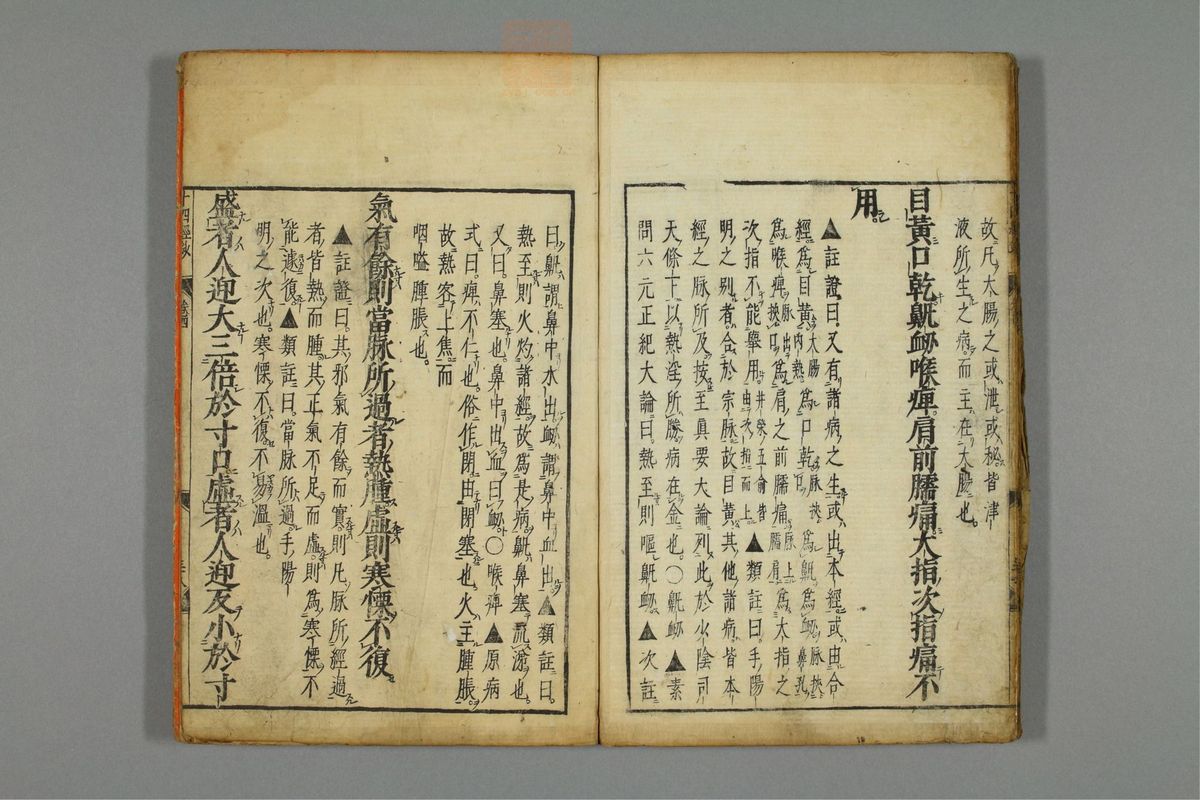 故ニ凡ソ太腸ノ之或ハ泄或ハ秘皆津
液所生之病ノ而主在太腸也
目黄口乾鼽衂喉痺肩前臑痛大指次指痛不
用
▲註證曰又有諸病之生或出本經或由合
經為目黄太腸内熱為口乾脉挾口為鼽為衂脉挾鼻孔
為喉痺脉出挾口為肩之前臑痛脉上臑肩為大指之
次指不能舉用井榮五俞皆由次指而上▲類註曰手陽
明之别者合於宗脉故目黄其他諸病皆本
經之脉所及按至真要大論列此於少陰司
天條下以熱淫所勝病在金也○鼽衂▲素
問六元正紀大論曰熱至則嘔鼽衂▲次註
曰鼽謂鼻中水出衂謂鼻中血出▲類註曰
熱至則火灼諸經故為是病鼽鼻塞流涕也
又曰鼻塞也鼻中出血曰衂○喉痺▲原病
式曰痺不仁也俗作閉由閉塞也火主腫脹
故熱客上焦而
咽嗌腫脹也
氣有餘則當脉所過者熱腫虛則寒慄不復
▲註證曰其邪氣有餘而實則凡脉所經過
者皆熱而腫其正氣不足而虛則為寒慄不
能遽復▲類註曰當脉所過手陽
明之次也寒慄不復不易溫也
盛者人迎大三倍於寸口虛者人迎反小於寸
十四經